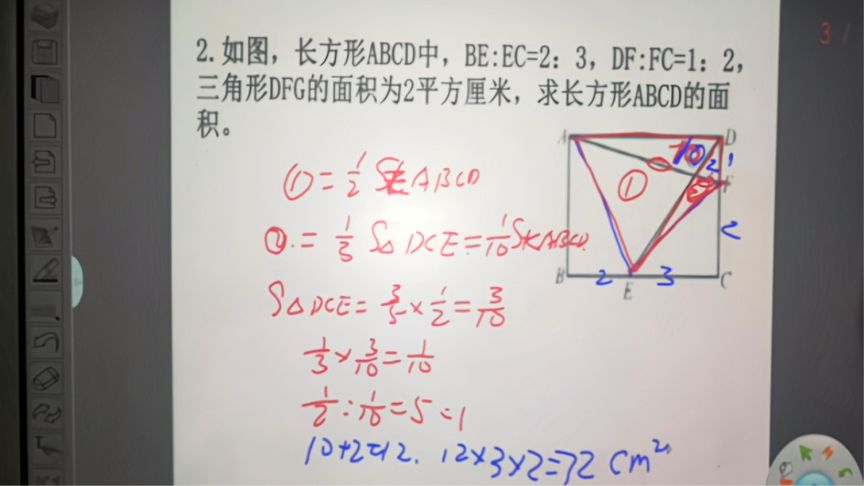 3
2.如图，长方形ABCD中，BE:EC=2：3，DF:FC=1：2，
三角形DFG的面积为2平方厘米，求长方形ABCD的面
积。
A
D
10
2
1
①
F
2
B
2
E
3
C
①=1/2 S长ABCD
②.=1/3 S△DCE=1/10 S长ABCD.
S△DCE=3/5×1/2=3/10
1/3×3/10=1/10
1/2:1/10=5:1
10+2=12. 12×3×2=72 cm²